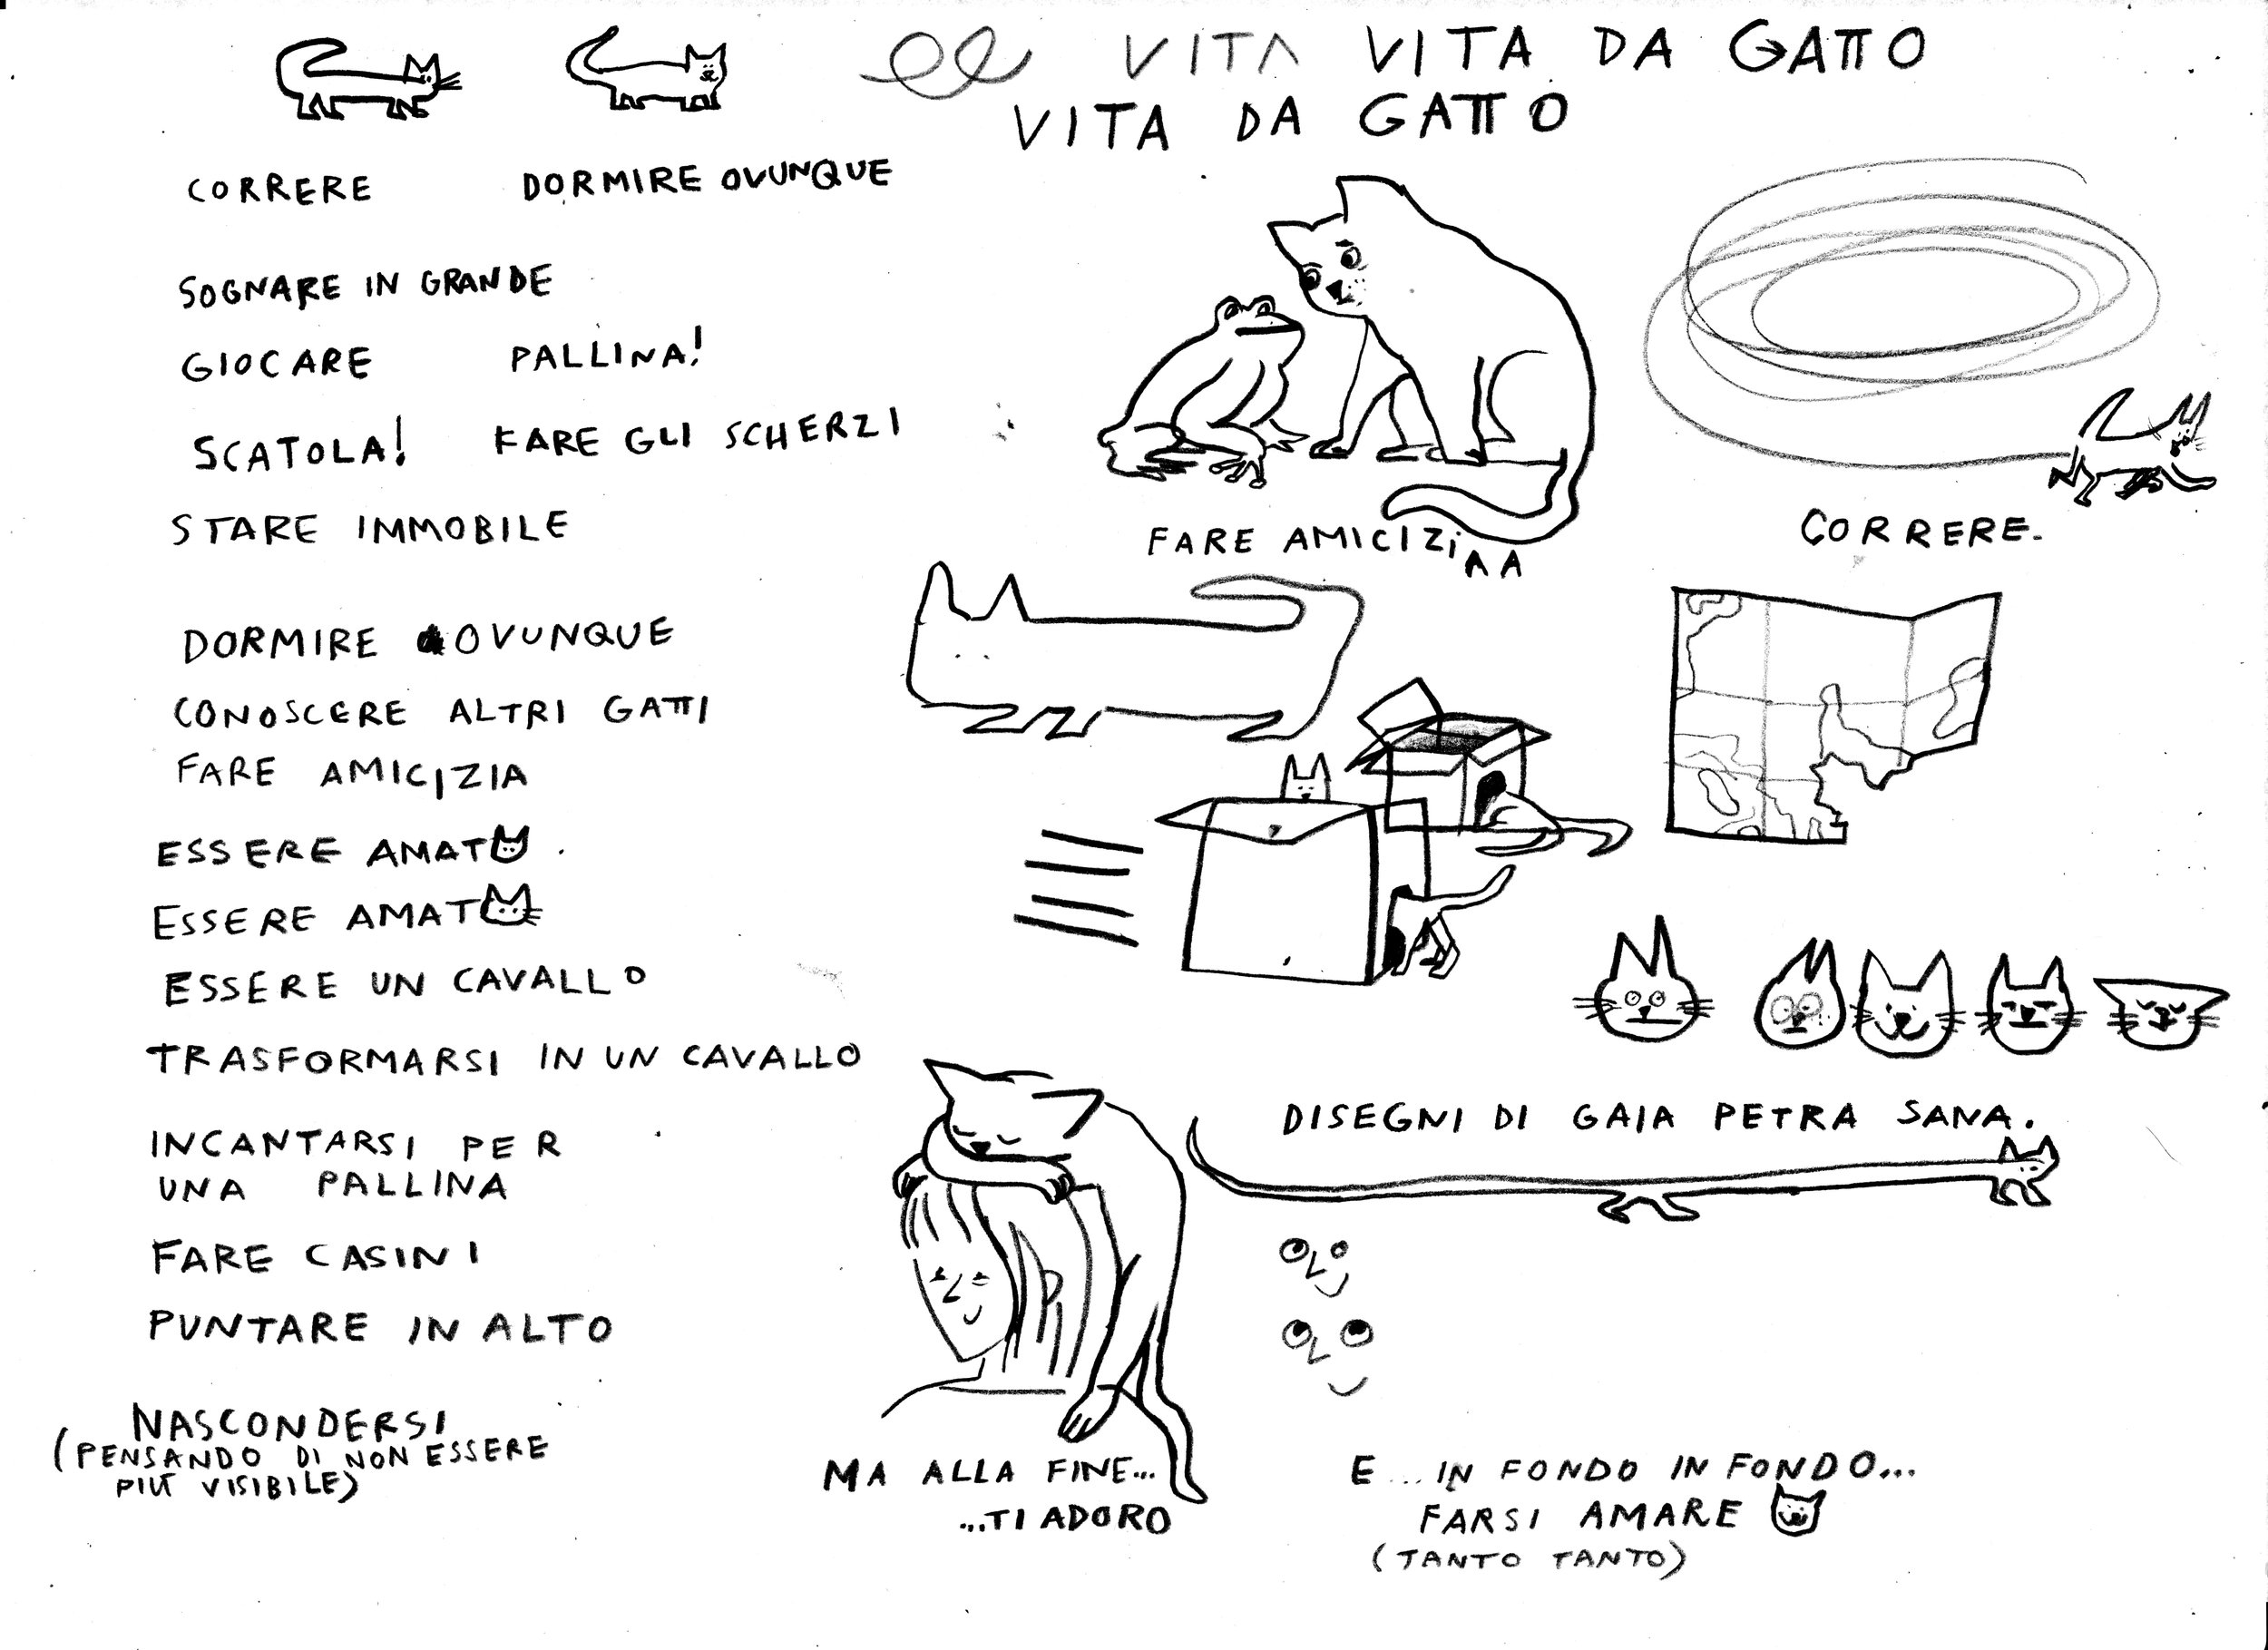 VITA VITA DA GATTO
VITA DA GATTO
CORRERE DORMIRE OVUNQUE
SOGNARE IN GRANDE
GIOCARE PALLINA!
SCATOLA! FARE GLI SCHERZI
STARE IMMOBILE
DORMIRE OVUNQUE
CONOSCERE ALTRI GATTI
FARE AMICIZIA
ESSERE AMAT
ESSERE AMAT
ESSERE UN CAVALLO
TRASFORMARSI IN UN CAVALLO
INCANTARSI PER
UNA PALLINA
FARE CASINI
PUNTARE IN ALTO
NASCONDERSI
(PENSANDO DI NON ESSERE
PIÙ VISIBILE)
FARE AMICIZiAA
CORRERE.
DISEGNI DI GAIA PETRA SANA.
MA ALLA FINE...
...TI ADORO
E ... IN FONDO IN FONDO...
FARSI AMARE
(TANTO TANTO)